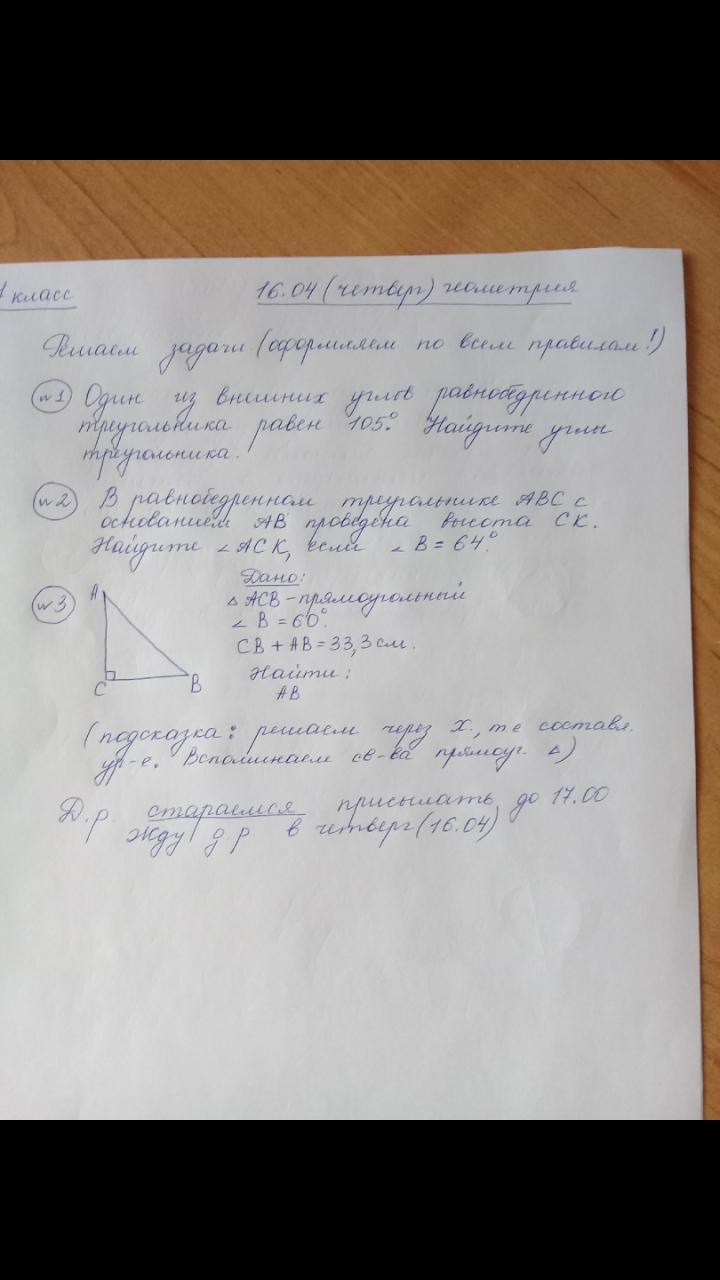 7 класс
16.04 (четверг) геометрия
Решаем задачи (оформляем по всем правилам!)
№1 Один из внешних углов равнобедренного
треугольника равен 105°. Найдите углы
треугольника.
№2 В равнобедренном треугольнике ABC с
основанием AB проведена высота CK.
Найдите ∠ACK, если ∠B = 64°.
№3
A
C
B
Дано:
△ACB – прямоугольный
∠B = 60°.
CB + AB = 33,3 см.
Найти:
AB
(подсказка: решаем через x, т.е составл.
ур-е. Вспоминаем св-ва прямоуг. △)
Д.р. стараемся присылать до 17.00
Жду д.р в четверг (16.04)